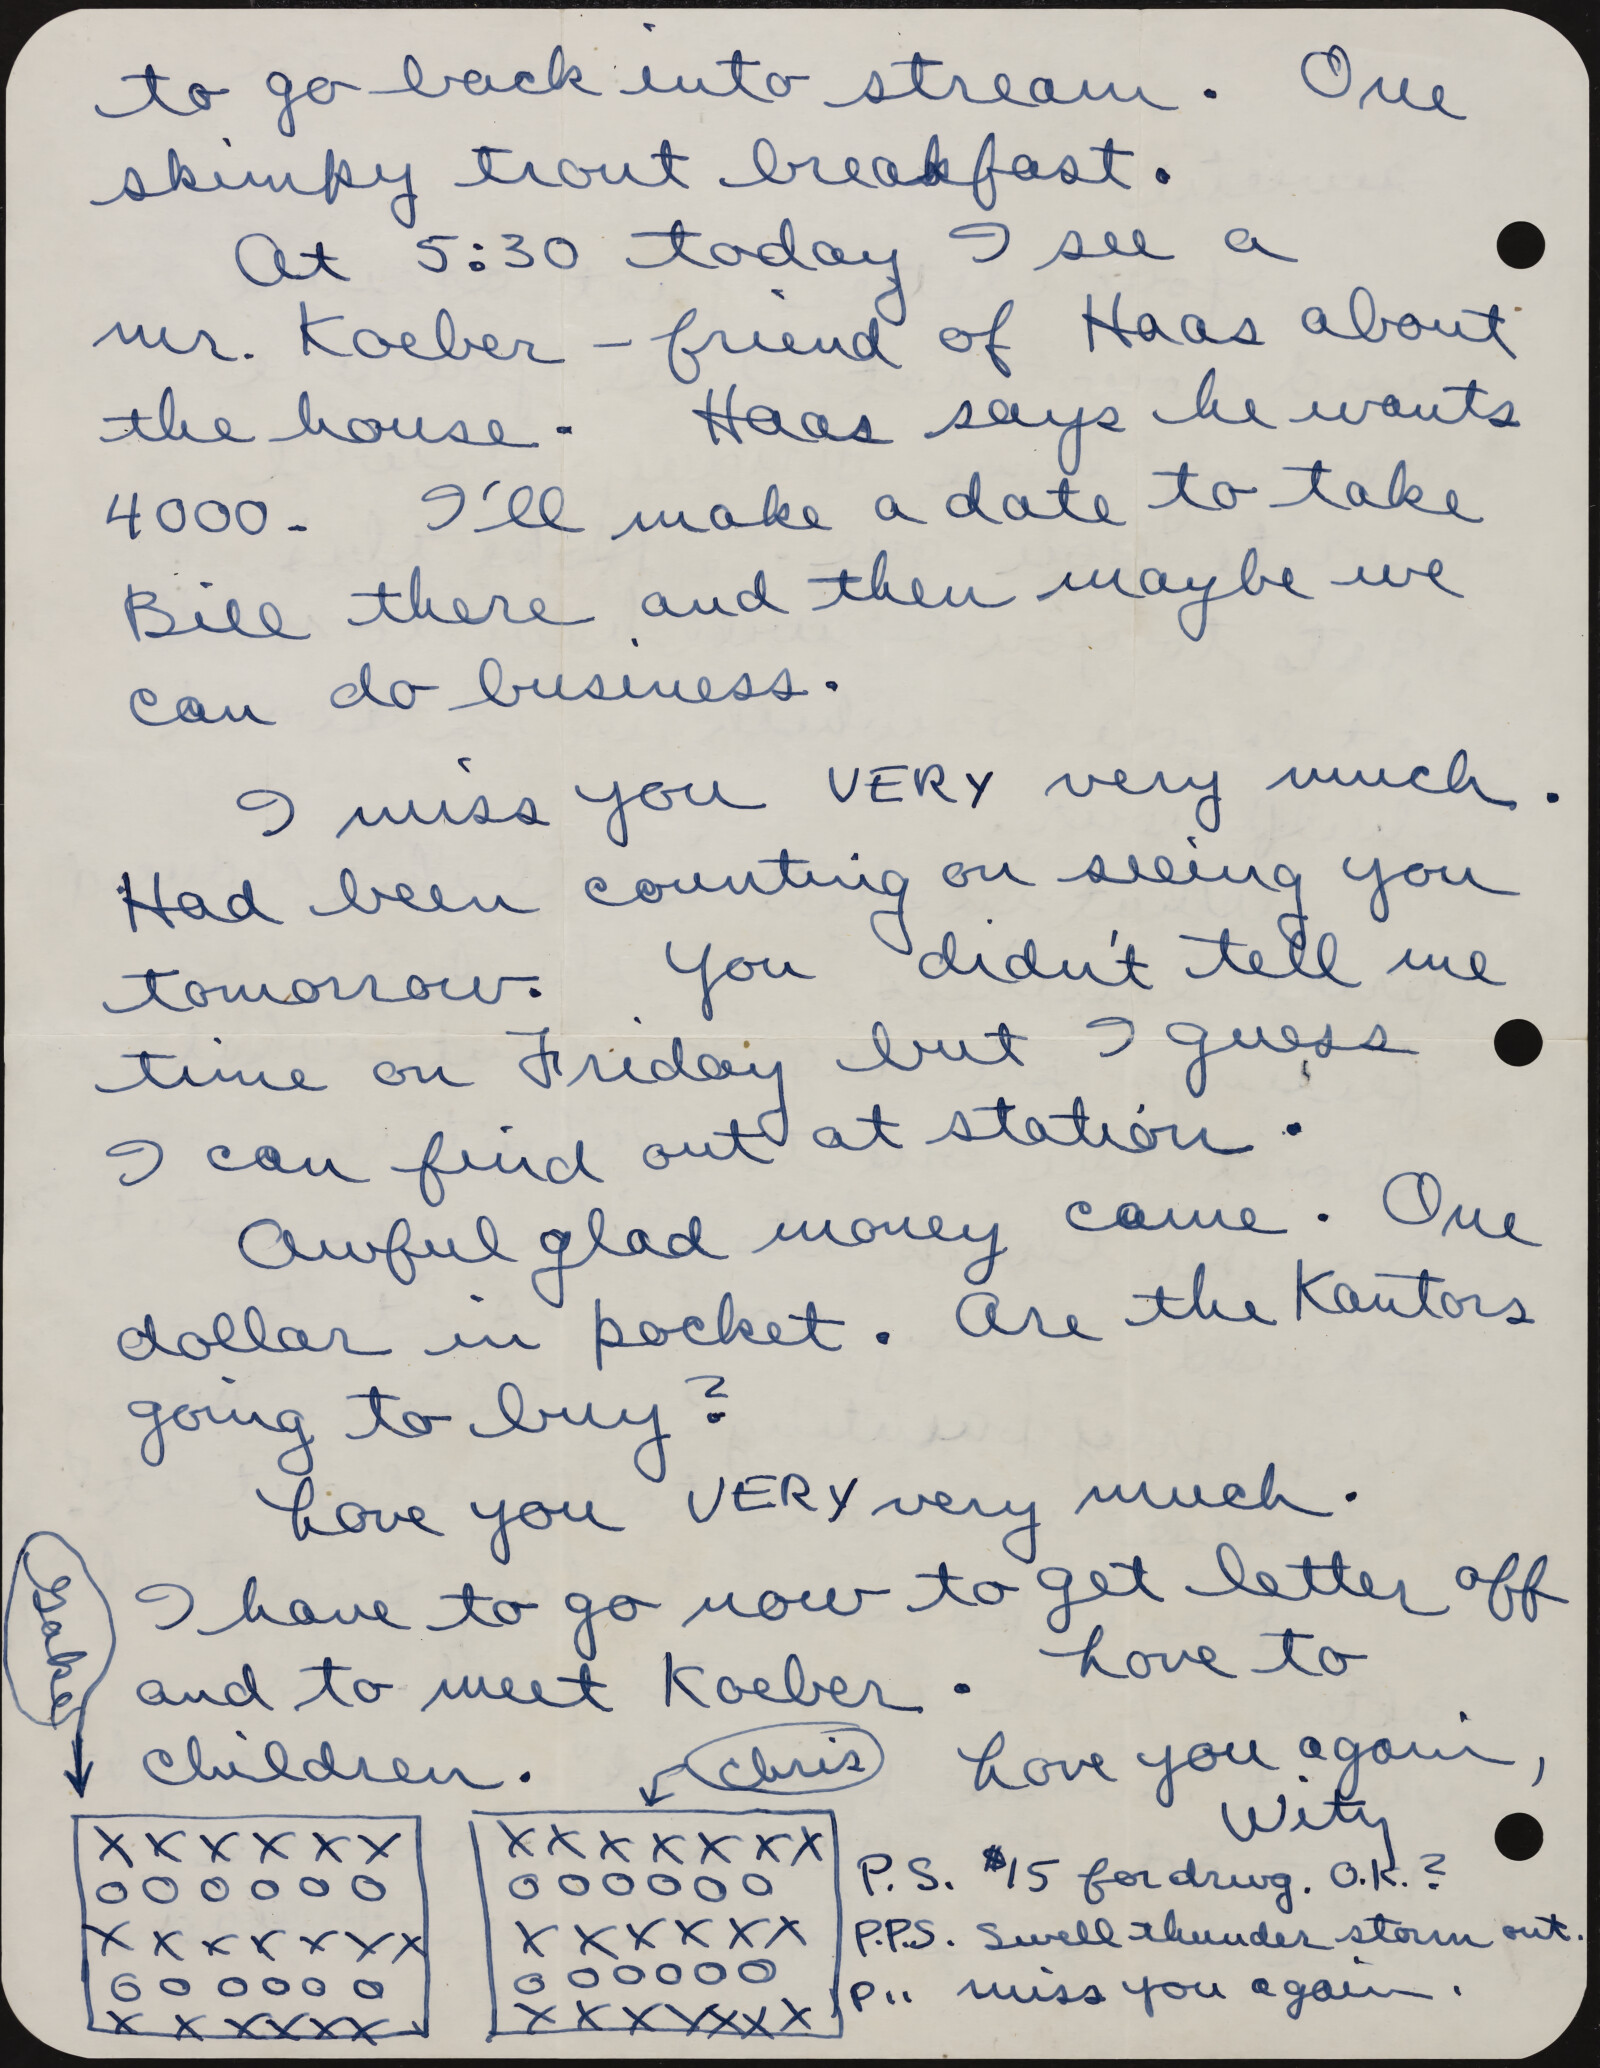 to go back into stream. One
skimpy trout breakfast.
At 5:30 today I see a
mr. Koeber – friend of Haas about
the house. Haas says he wants
4000. I'll make a date to take
Bill there and then maybe we
can do business.
I miss you VERY very much.
Had been counting on seeing you
tomorrow. You didn't tell me
time on Friday but I guess
I can find out at station.
Awful glad money came. One
dollar in pocket. Are the Kantors
going to buy?
Love you VERY very much.
I have to go now to get letter off
and to meet Koeber. Love to
children. Love you again,
Wity
Gaky
Chris
X X X X X X
O O O O O O
X X X X X X X
O O O O O O
X X X X X X
X X X X X X X
O O O O O O
X X X X X X
O O O O O O
X X X X X X X
P.S. $15 for drug. O.K.?
P.P.S. Swell thunder storm out.
P " miss you again.